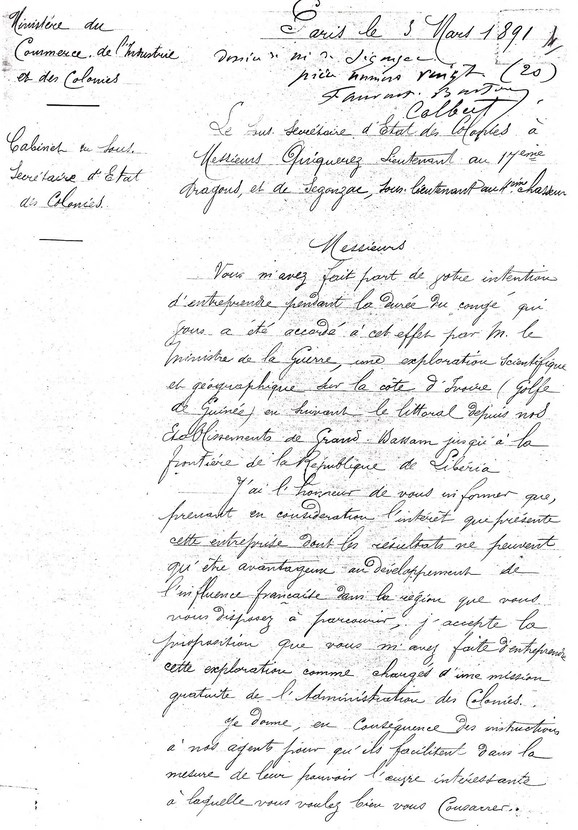 Ministère du
Commerce, de l'Industrie
et des Colonies
Paris le 3 Mars 1891
dossier de M. de Segonzac
pièce numéro vingt (20)
Colbert
Cabinet du Sous
Secrétaire d'Etat
des Colonies.
Le Sous Secrétaire d'Etat des Colonies à
Messieurs Quiquerez lieutenant au 17eme
dragons, et de Segonzac, sous-lieutenant au chasseur
Messieurs
Vous m'avez fait part de votre intention
d'entreprendre pendant la durée du congé qui
vous a été accordé à cet effet par M. le
Ministre de la Guerre, une exploration scientifique
et géographique sur la côte d'Ivoire (Golfe
de Guinée) en suivant le littoral depuis nos
Etablissements de Grand-Bassam jusqu'à la
frontière de la République de Libéria
J'ai l'honneur de vous informer que,
prenant en considération l'intérêt que présente
cette entreprise dont les résultats ne peuvent
qu'être avantageux au développement de
l'influence française dans la région que vous
vous disposez à parcourir, j'accepte la
proposition que vous m'avez faite d'entreprendre
cette exploration comme chargés d'une mission
gratuite de l'Administration des Colonies.
Je donne, en conséquence des instructions
à nos agents pour qu'ils facilitent dans la
mesure de leur pouvoir l'œuvre intéressante
à laquelle vous voulez bien vous consacrer.